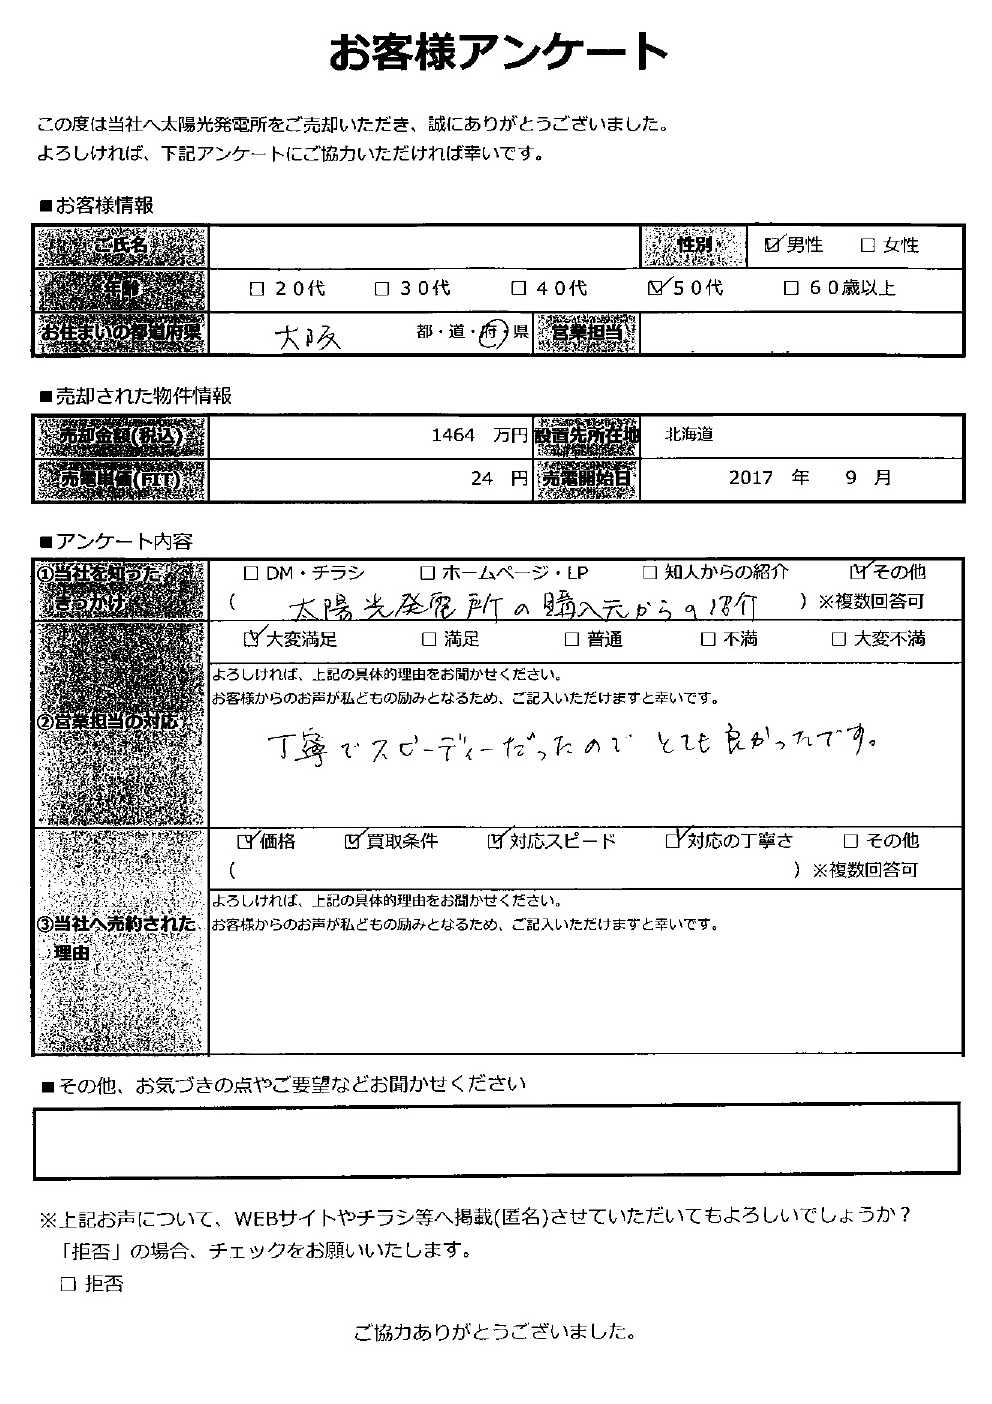 お客様アンケート
この度は当社へ太陽光発電所をご売却いただき、誠にありがとうございました。
よろしければ、下記アンケートにご協力いただければ幸いです。
■お客様情報
ご氏名 性別 ☑男性 □女性
年齢 □20代 □30代 □40代 ☑50代 □60歳以上
お住まいの都道府県 大阪 都・道・府・県 営業担当
■売却された物件情報
売却金額(税込) 1464 万円 設置先所在地 北海道
売電単価(FIT) 24 円 売電開始日 2017 年 9 月
■アンケート内容
①当社を知ったきっかけ □DM・チラシ □ホームページ・LP □知人からの紹介 ☑その他
( 太陽光発電所の購入元からの紹介 ) ※複数回答可
②営業担当の対応 ☑大変満足 □満足 □普通 □不満 □大変不満
よろしければ、上記の具体的理由をお聞かせください。
お客様からのお声が私どもの励みとなるため、ご記入いただけますと幸いです。
丁寧でスピーディーだったのでとても良かったです。
③当社へ売約された理由 ☑価格 ☑買取条件 ☑対応スピード ☑対応の丁寧さ □その他
( ) ※複数回答可
よろしければ、上記の具体的理由をお聞かせください。
お客様からのお声が私どもの励みとなるため、ご記入いただけますと幸いです。
■その他、お気づきの点やご要望などお聞かせください
※上記お声について、WEBサイトやチラシ等へ掲載(匿名)させていただいてもよろしいでしょうか？
「拒否」の場合、チェックをお願いいたします。
□ 拒否
ご協力ありがとうございました。